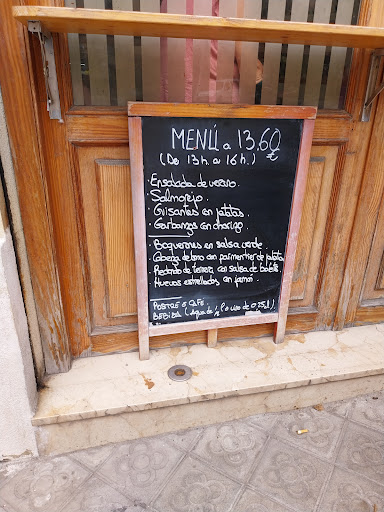 MENÚ a 13.60 €
(De 13h. a 16h.)
· Ensalada de verano.
· Salmorejo.
· Guisantes con patatas.
· Garbanzos con chorizo.
· Boquerones en salsa verde.
· Cabeza de lomo con parmentier de patatas
· Redondo de ternera con salsa de bolets
· Huevos estrellados con jamón.
POSTRE o CAFÉ.
BEBIDA (Agua de ½ l o vino de 0,25 l)